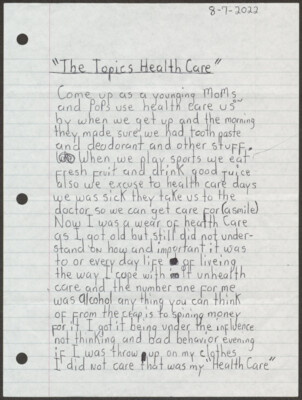 8-7-2022
"The Topics Health Care"
Come up as a younging Mom's
and Pop's use health care us
by when we get up and the morning
they made sure we had tooth paste
and deodorant and other stuff.
When we play sports we eat
fresh fruit and drink good juice
also we excuse to health care days
we was sick they take us to the
doctor so we can get care for (asmile)
Now I was a wear of health care
as I got old but still did not under-
stand on how and important it was
to or every day life of liveing
the way I cope with it unhealth
care and the number one for me
was alcohol any thing you can think
of from the crap is to spining money
for it. I got it being under the influence
not thinking and bad behavior evening
if I was throw up on my clothes
I did not care that was my "Health Care"